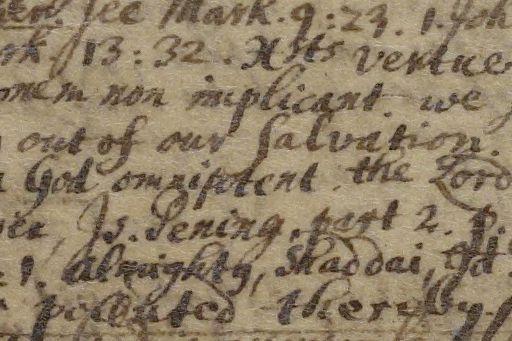 see Mark. 9:23. 1. Joh
rk. 13:32. Xsts vertue
omem non implicant we
out of our salvation.
God omnipotent. the Lord
Is. Pening. part 2. p.
1. Almighty, Shaddai, Gd.
polluted thereby.